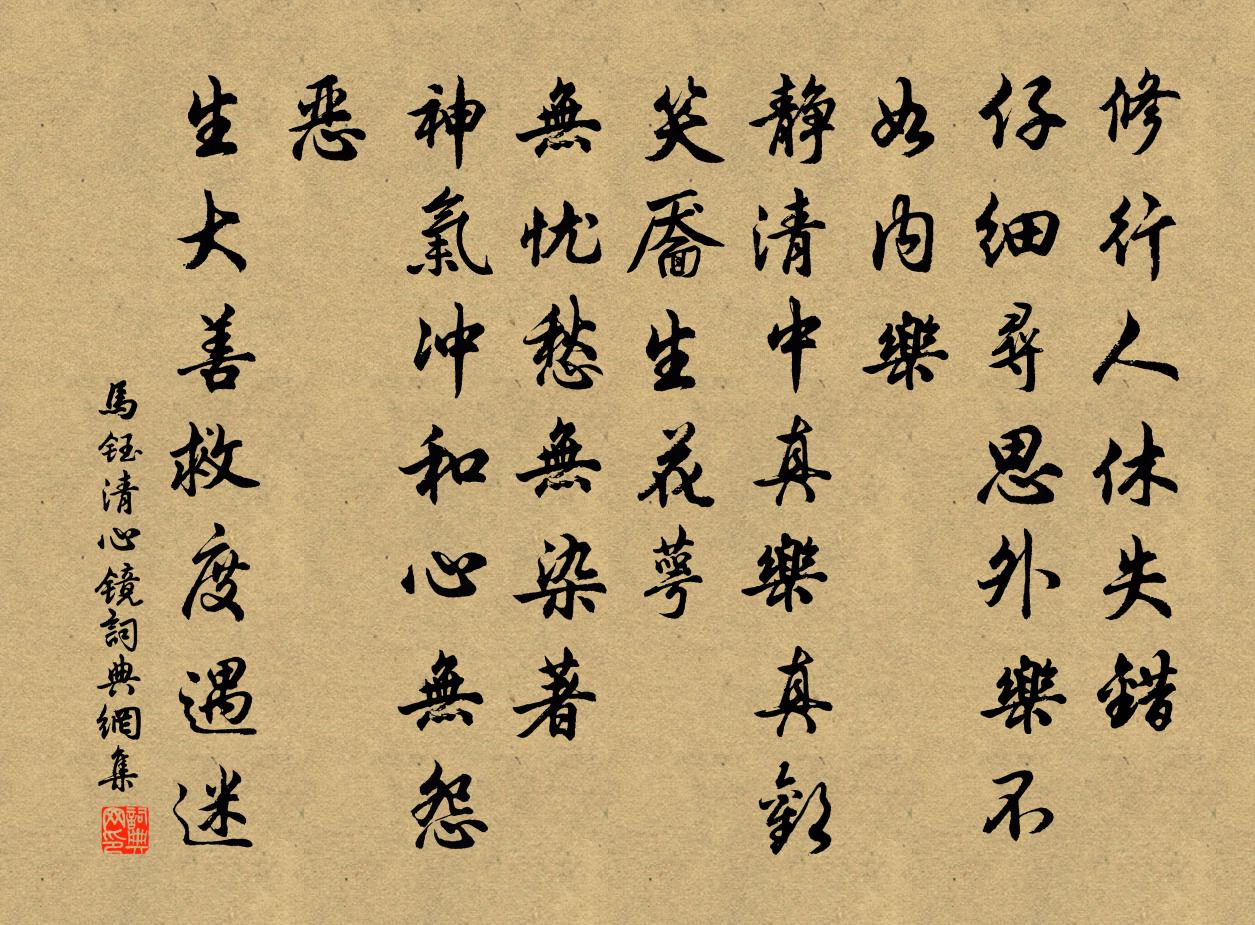 修行人休失錯
仔細尋思外樂不
如內樂
靜清中真樂真歡
笑靨生花萼
無忧愁無染著
神氣冲和心無怨
惡
生大善救度遇迷
馬鈺清心鏡詞典網集
詞典網印